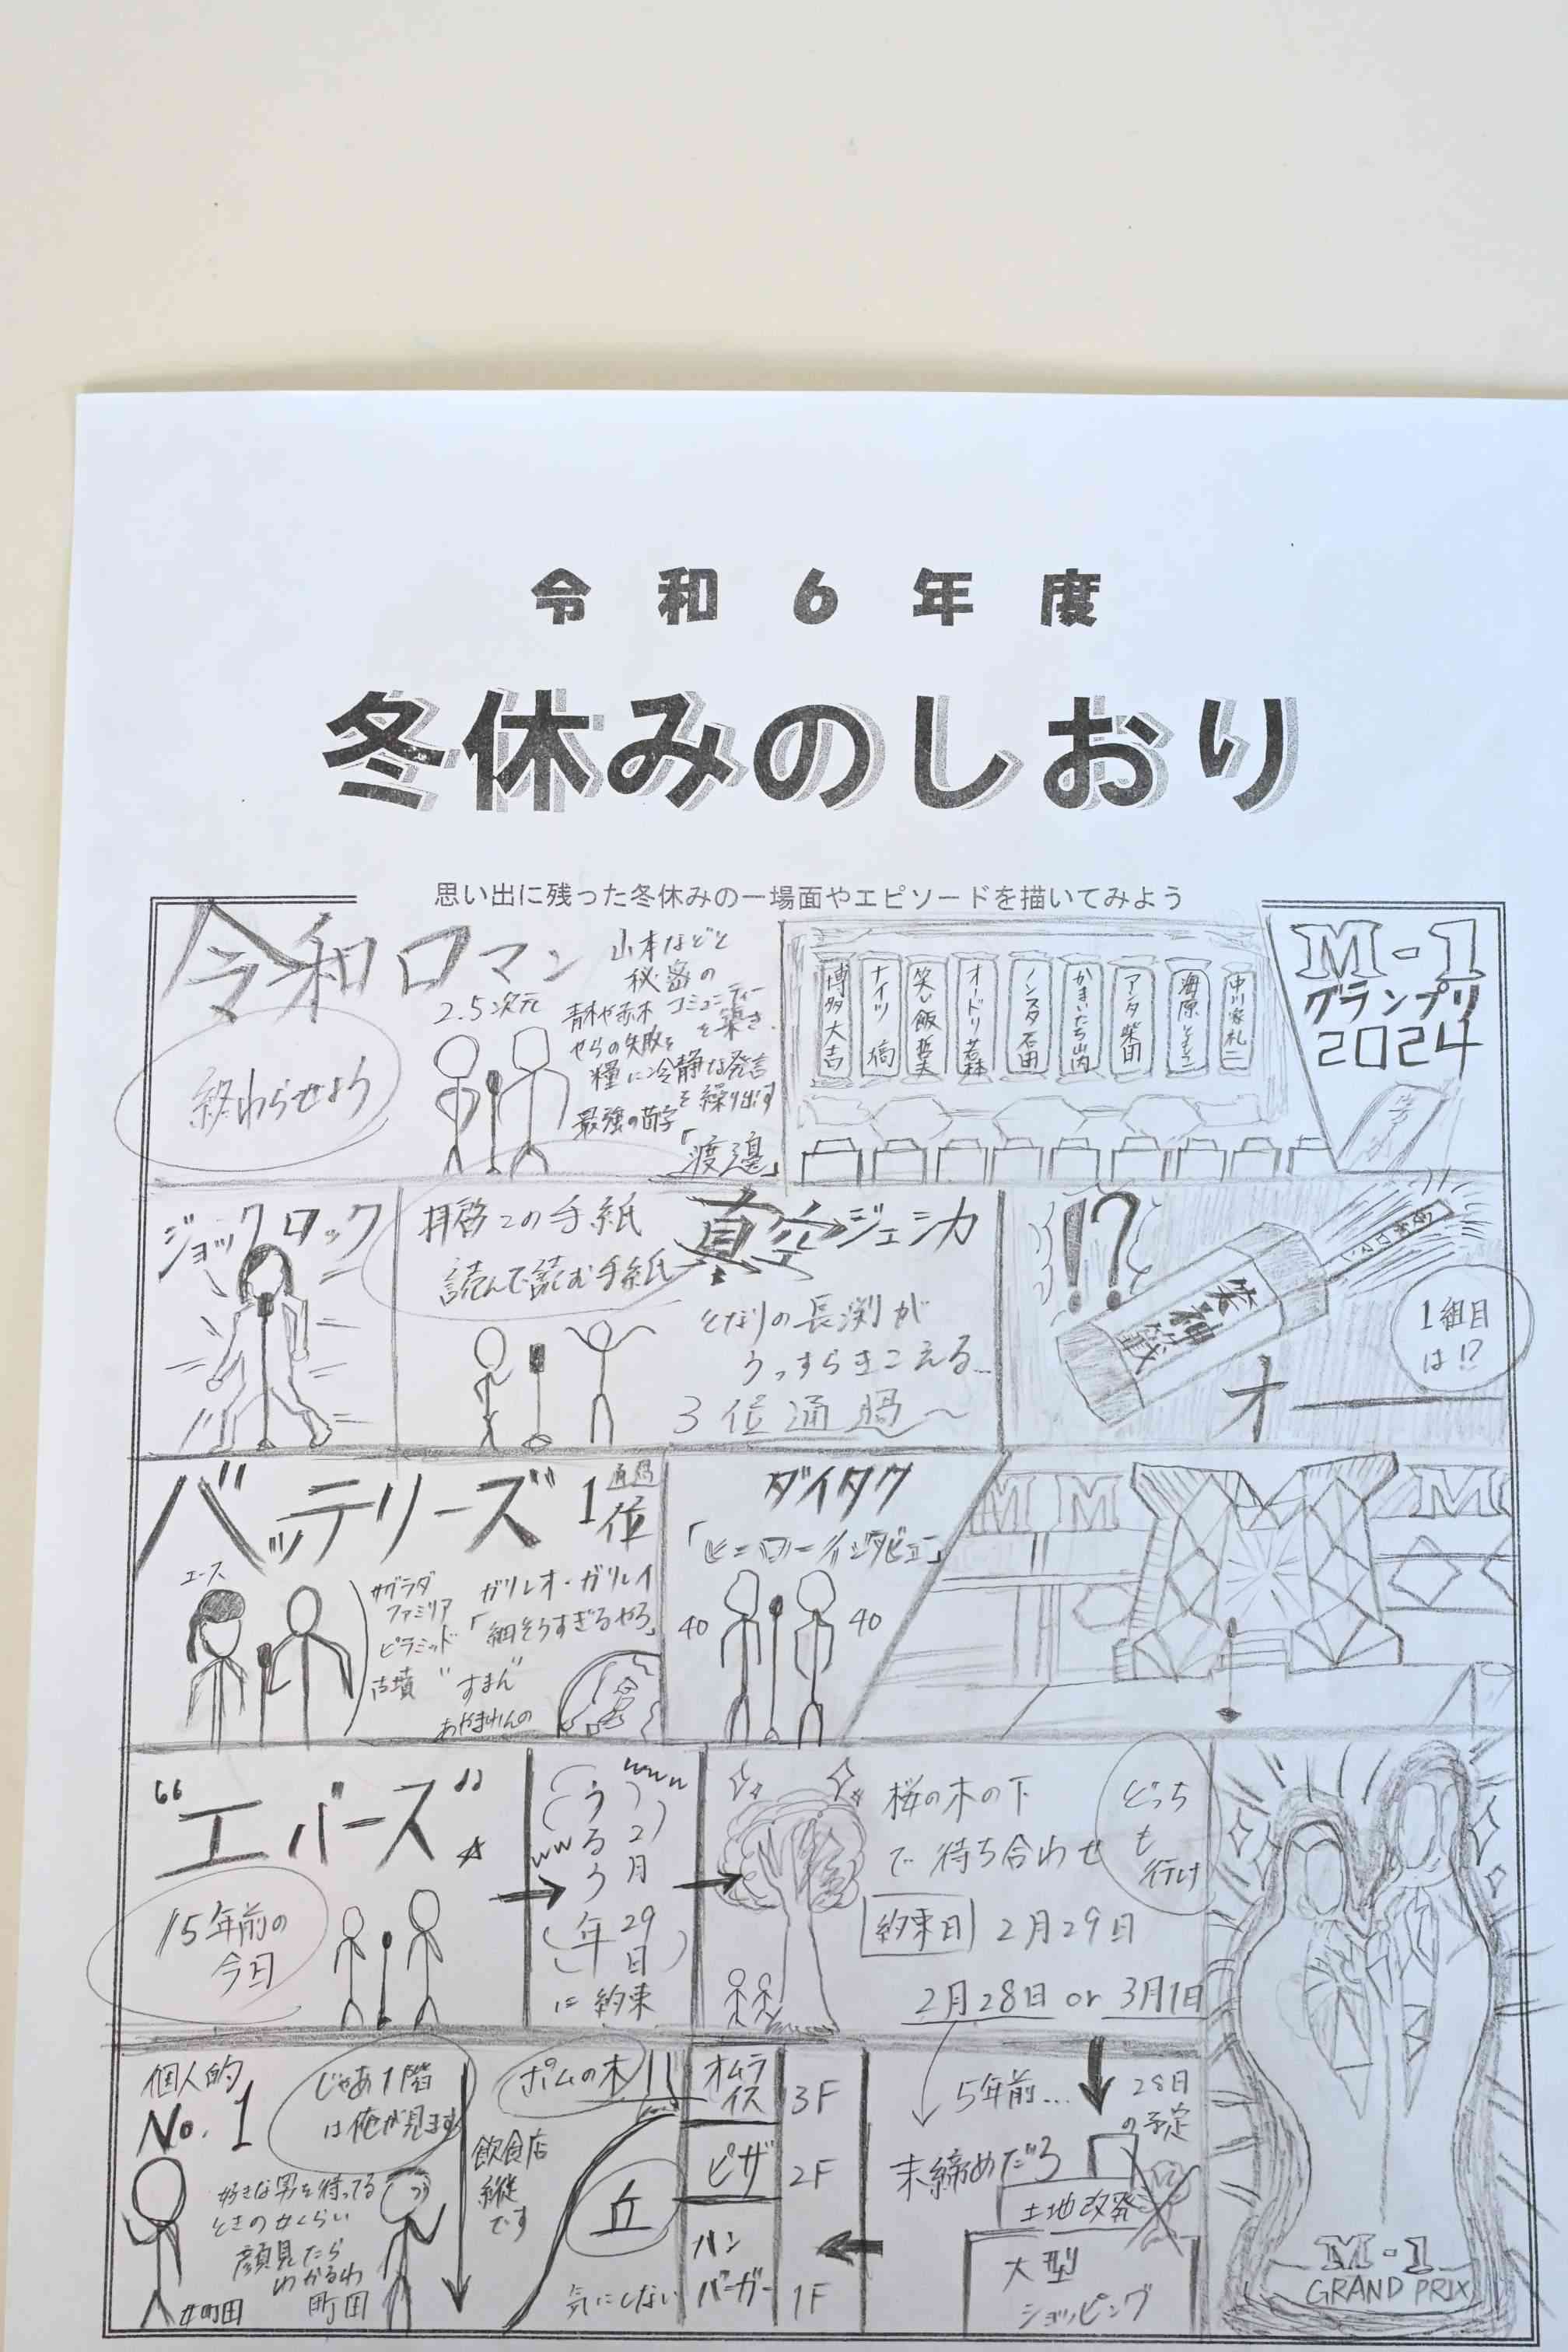 令和6年度
冬休みのしおり
思い出に残った冬休みの一場面やエピソードを描いてみよう
令和ロマン
終わらせよう
2.5次元
山本などと
秘密の
コミュニティー
を築き
青木や赤木
やらの失敗を
糧に冷静な発言
を繰り出す
最強の苗字
「渡邊」
博多大吉
ナイツ塙
笑い飯哲夫
オードリー若林
ノンスタ石田
かまいたち山内
アンタ柴田
海原ともこ
中川家礼二
M-1
グランプリ
2024
ジョックロック
拝啓この手紙
読んで読む手紙
真空ジェシカ
となりの長渕が
うっすらきこえる…
3位通過〜
!?
笑神籤
1組目
は!?
オー
バッテリーズ
1位
通過
エース
サグラダ
ファミリア
ピラミッド
古墳
ガリレオ・ガリレイ
「細そらすぎるやろ」
"すまん"
あやまれんの
ダイタク
「ヒーローインタビュー」
40
40
M M
M
"エバーズ"
15年前の
今日
www
ww
(うるう年)
2月29日
に約束
桜の木の下
で待ち合わせ
どっち
も
行け
約束日 2月29日
2月28日 or 3月1日
個人的
No.1
じゃあ1階
は俺が見ます
好きな男を待ってる
ときの女くらい
顔見たら
わかるわ
町田
女町田
飲食店
縦
です
ポムの木
丘
気にしない
オムライス 3F
ピザ 2F
ハンバーガー 1F
5年前…
末締めだろ
28日
の予定
土地改発
大型
ショッピング
M-1
GRAND PRIX